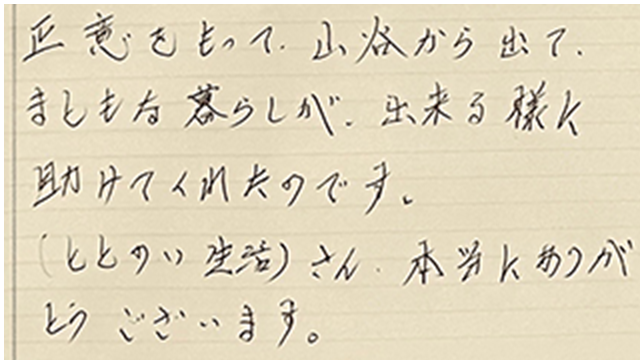 正意をもって、山谷から出て、
まともな暮らしが、出来る様に
助けてくれたのです。
(ととのい生活)さん、本当にありが
とうございます。